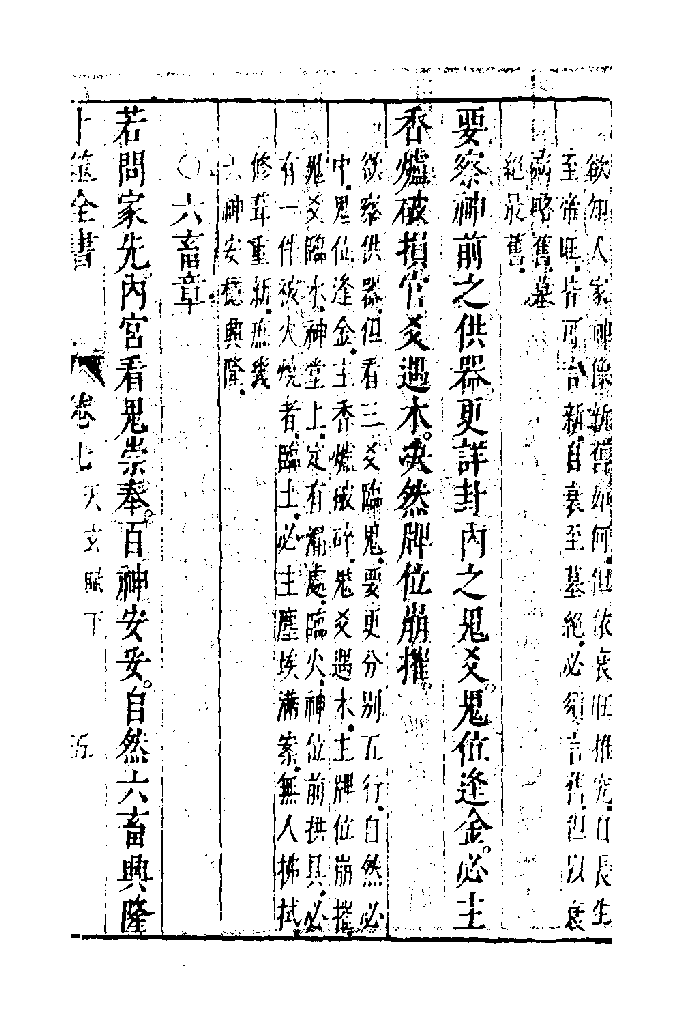 欲知人家神像新舊如何但依衰旺推究自長生
至帝旺皆可言新自衰至墓絕必須言舊但以衰
病略舊墓
絕最舊
要察神前之供器更詳封內之鬼爻鬼位逢金必主
香爐破損官爻遇木決然牌位崩摧
欲察供器但看三爻臨鬼要更分別五行自然必
中鬼位逢金主香爐破碎鬼爻遇木主牌位崩摧
鬼爻臨水神堂上定有漏處臨火神位前拱具必
有一件被火燒者臨土必主塵埃滿案無人拂拭
修葺重新庶幾
六神安穩興隆
○六畜章
若問家先內宮看鬼崇奉百神安妥自然六畜興隆
卜筮全書
卷七 天玄賦下 五